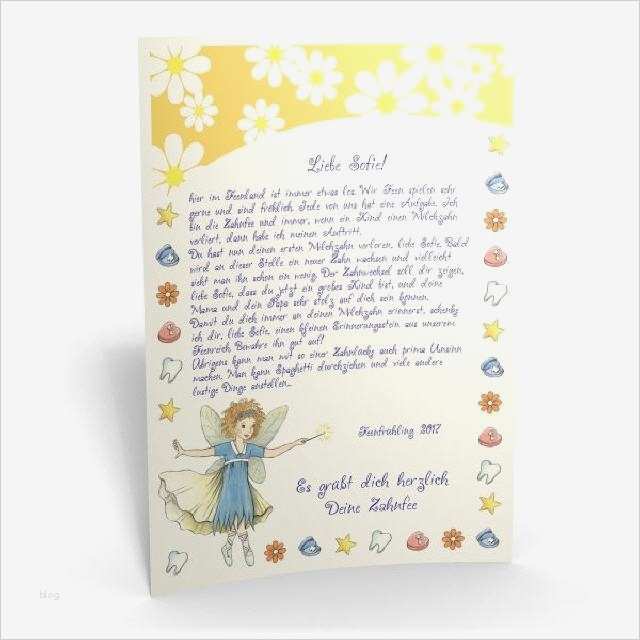 Liebe Sofie!
hier im Feenland ist immer etwas los. Wir Feen spielen sehr
gerne und sind fröhlich. Jede von uns hat eine Aufgabe. Ich
bin die Zahnfee und immer, wenn ein Kind einen Milchzahn
verliert, dann habe ich meinen Auftritt.
Du hast nun deinen ersten Milchzahn verloren, liebe Sofie. Bald
wird an dieser Stelle ein neuer Zahn wachsen und vielleicht
sieht man ihn schon ein wenig. Der Zahnwechsel soll dir zeigen,
liebe Sofie, dass du jetzt ein großes Kind bist, und deine
Mama und dein Papa sehr stolz auf dich sein können.
Damit du dich immer an deinen Milchzahn erinnerst, schenke
ich dir, liebe Sofie, einen kleinen Erinnerungsstein aus unserem
Feenreich. Bewahre ihn gut auf!
Übrigens kann man mit so einer Zahnlücke auch prima Unsinn
machen. Man kann Spaghetti durchziehen und viele andere
lustige Dinge anstellen...
Feenfrühling 2017
Es grüßt dich herzlich
Deine Zahnfee
blog